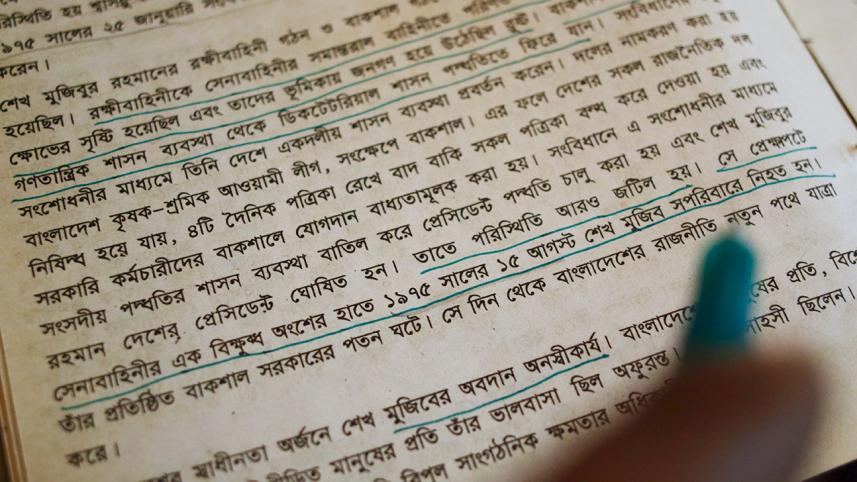 ১৯৭৫ সালের ২৫ জানুয়ারি
করেন।
শেখ মুজিবুর রহমানের রক্ষীবাহিনী গঠন ও বাকশাল
হয়েছিল। রক্ষীবাহিনীকে সেনাবাহিনীর সমান্তরাল বাহিনীতে
ক্ষোভের সৃষ্টি হয়েছিল এবং তাদের ভূমিকায় জনগণ হয়ে উঠেছিল ক্ষুব্ধ।
গণতান্ত্রিক শাসন ব্যবস্থা থেকে ডিকটেটরিয়াল শাসন পদ্ধতিতে ফিরে যান। সংবিধানের
সংশোধনীর মাধ্যমে তিনি দেশে একদলীয় শাসন ব্যবস্থা প্রবর্তন করেন। দলের নামকরণ করা হয়
বাংলাদেশ কৃষক-শ্রমিক আওয়ামী লীগ, সংক্ষেপে বাকশাল। এর ফলে দেশের সকল রাজনৈতিক দল
নিষিদ্ধ হয়ে যায়, ৪টি দৈনিক পত্রিকা রেখে বাদ বাকি সকল পত্রিকা বন্ধ করে দেওয়া হয় এবং
সরকারি কর্মচারীদের বাকশালে যোগদান বাধ্যতামূলক করা হয়। সংবিধানে এ সংশোধনীর মাধ্যমে
সংসদীয় পদ্ধতির শাসন ব্যবস্থা বাতিল করে প্রেসিডেন্ট পদ্ধতি চালু করা হয় এবং শেখ মুজিবুর
রহমান দেশের প্রেসিডেন্ট ঘোষিত হন। তাতে পরিস্থিতি আরও জটিল হয়। সে প্রেক্ষাপটে
সেনাবাহিনীর এক বিক্ষুব্ধ অংশের হাতে ১৯৭৫ সালের ১৫ আগস্ট শেখ মুজিব সপরিবারে নিহত হন।
তাঁর প্রতিষ্ঠিত বাকশাল সরকারের পতন ঘটে। সে দিন থেকে বাংলাদেশের রাজনীতি নতুন পথে যাত্রা
করে।
স্বাধীনতা অর্জনে শেখ মুজিবের অবদান অনস্বীকার্য। প্রতি,
মানুষের প্রতি তাঁর ভালবাসা ছিল অফুরন্ত। ছিলেন।
বিপুল সাংগঠনিক ক্ষমতার